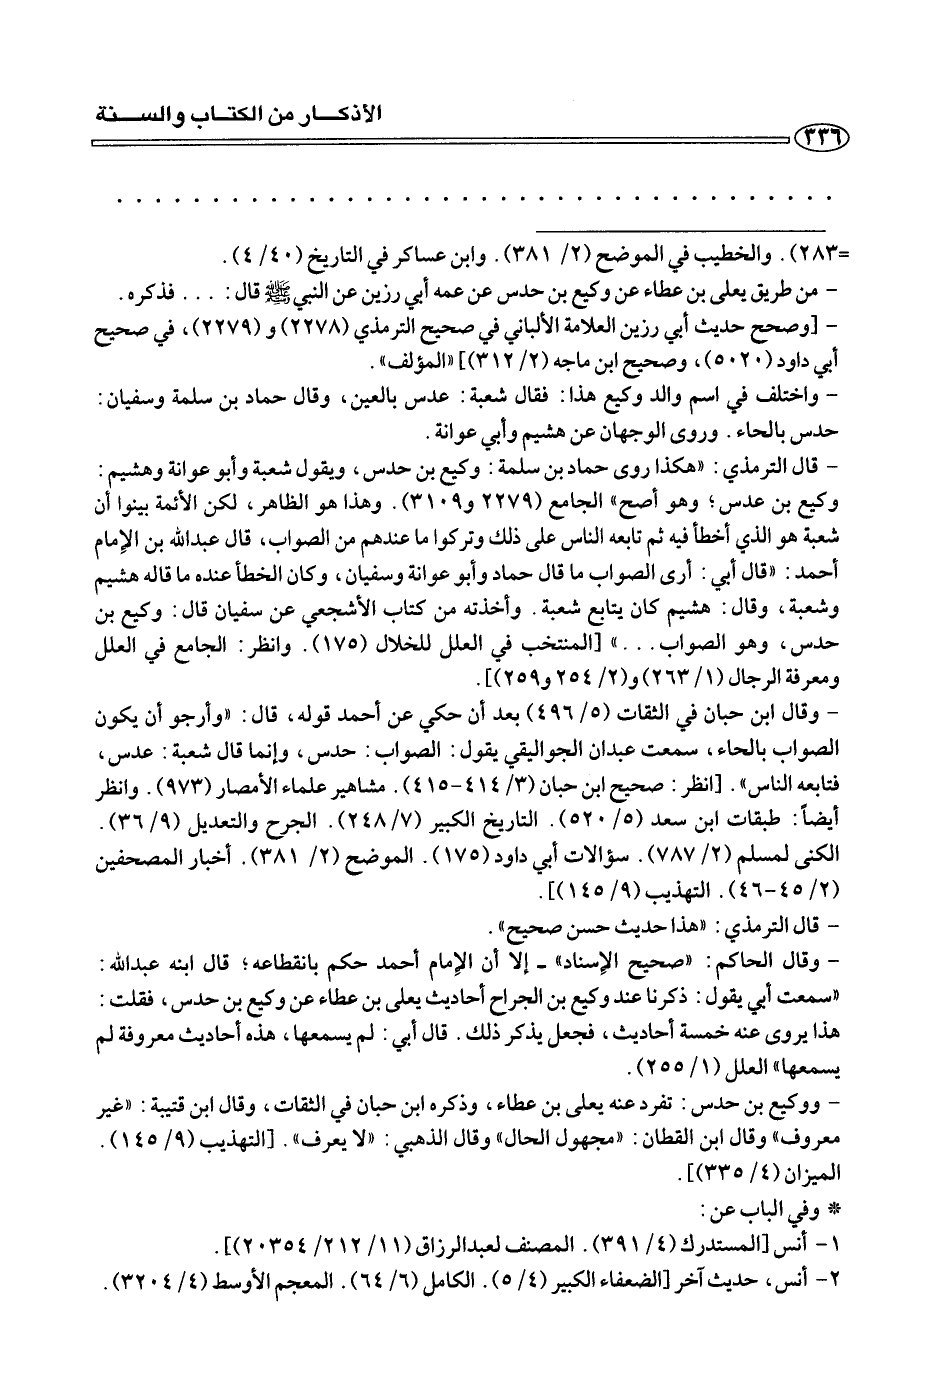 الأذكـــار من الكتـاب والســـنة
٣٣٦
. . . . . . . . . . . . . . . . . . . . . . . . . . . . . . . . . . . .
=٢٨٣). والخطيب في الموضح (٢/ ٣٨١). وابن عساكر في التاريخ (٤٠/ ٤).
- من طريق يعلى بن عطاء عن وكيع بن حدس عن عمه أبي رزين عن النبي ﷺ قال: ... فذكره.
- [وصحح حديث أبي رزين العلامة الألباني في صحيح الترمذي (٢٢٧٨) و (٢٢٧٩)، في صحيح
أبي داود (٥٠٢٠)، وصحيح ابن ماجه (٢/ ٣١٢)] «المؤلف».
- واختلف في اسم والد وكيع هذا: فقال شعبة: عدس بالعين، وقال حماد بن سلمة وسفيان:
حدس بالحاء. وروى الوجهان عن هشيم وأبي عوانة.
- قال الترمذي: «هكذا روى حماد بن سلمة: وكيع بن حدس، ويقول شعبة وأبو عوانة وهشيم:
وكيع بن عدس؛ وهو أصح» الجامع (٢٢٧٩ و٣١٠٩). وهذا هو الظاهر، لكن الأئمة بينوا أن
شعبة هو الذي أخطأ فيه ثم تابعه الناس على ذلك وتركوا ما عندهم من الصواب، قال عبدالله بن الإمام
أحمد: «قال أبي: أرى الصواب ما قال حماد وأبو عوانة وسفيان، وكان الخطأ عنده ما قاله هشيم
وشعبة، وقال: هشيم كان يتابع شعبة. وأخذته من كتاب الأشجعي عن سفيان قال: وكيع بن
حدس، وهو الصواب...» [المنتخب في العلل للخلال (١٧٥). وانظر: الجامع في العلل
ومعرفة الرجال (١/ ٢٦٣) و(٢/ ٢٥٤ و٢٥٩)].
- وقال ابن حبان في الثقات (٥/ ٤٩٦) بعد أن حكي عن أحمد قوله، قال: «وأرجو أن يكون
الصواب بالحاء، سمعت عبدان الجواليقي يقول: الصواب: حدس، وإنما قال شعبة: عدس،
فتابعه الناس». [انظر: صحيح ابن حبان (٣/ ٤١٤-٤١٥). مشاهير علماء الأمصار (٩٧٣). وانظر
أيضاً: طبقات ابن سعد (٥/ ٥٢٠). التاريخ الكبير (٧/ ٢٤٨). الجرح والتعديل (٩/ ٣٦).
الكنى لمسلم (٢/ ٧٨٧). سؤالات أبي داود (١٧٥). الموضح (٢/ ٣٨١). أخبار المصحفين
(٢/ ٤٥-٤٦). التهذيب (٩/ ١٤٥)].
- قال الترمذي: «هذا حديث حسن صحيح».
- وقال الحاكم: «صحيح الإسناد» ـ إلا أن الإمام أحمد حكم بانقطاعه؛ قال ابنه عبدالله:
«سمعت أبي يقول: ذكرنا عند وكيع بن الجراح أحاديث يعلى بن عطاء عن وكيع بن حدس، فقلت:
هذا يروى عنه خمسة أحاديث، فجعل يذكر ذلك. قال أبي: لم يسمعها، هذه أحاديث معروفة لم
يسمعها» العلل (١/ ٢٥٥).
- ووكيع بن حدس: تفرد عنه يعلى بن عطاء، وذكره ابن حبان في الثقات، وقال ابن قتيبة: «غير
معروف» وقال ابن القطان: «مجهول الحال» وقال الذهبي: «لا يعرف». [التهذيب (٩/ ١٤٥).
الميزان (٤/ ٣٣٥)].
* وفي الباب عن:
١- أنس [المستدرك (٤/ ٣٩١). المصنف لعبدالرزاق (١١/ ٢١٢/ ٢٠٣٥٤)].
٢- أنس، حديث آخر [الضعفاء الكبير (٤/ ٥). الكامل (٦/ ٦٤). المعجم الأوسط (٤/ ٣٢٠٤).